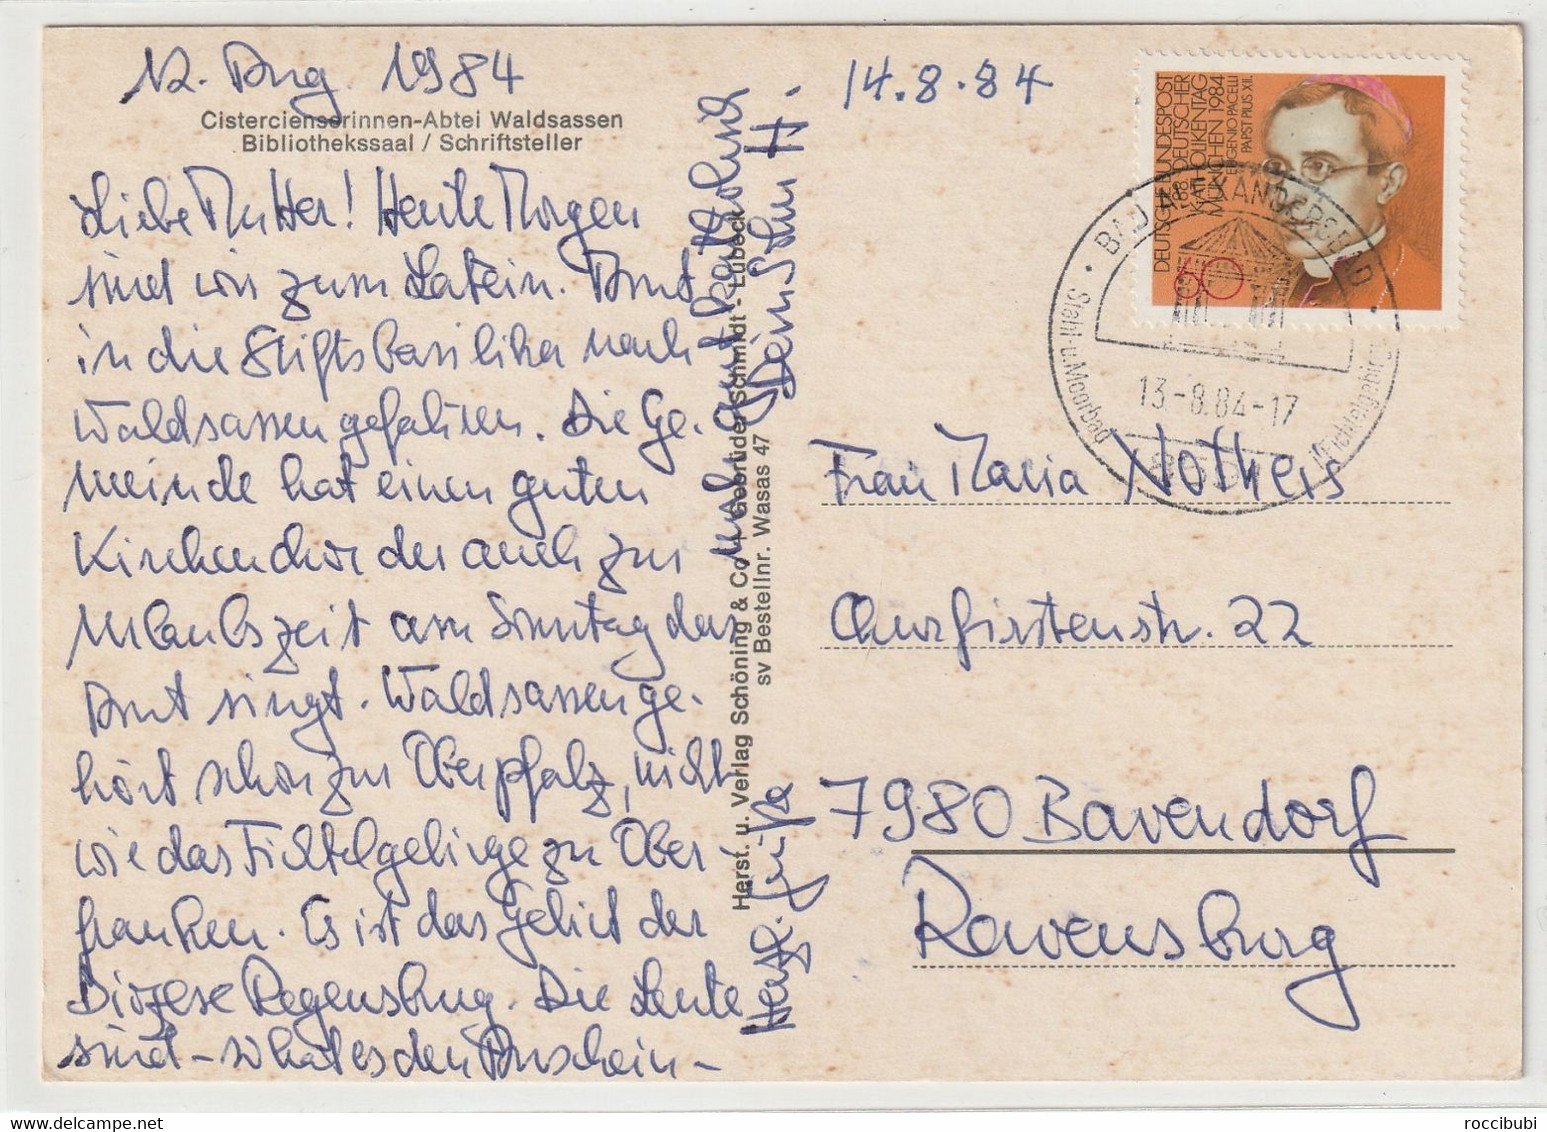 12. Aug. 1984
Cistercienserinnen-Abtei Waldsassen
Bibliothekssaal / Schriftsteller
Liebe Mutter! Heute Morgen
sind wir zum Latein. Amt
in die Stiftsbasilika nach
Waldsassen gefahren. Die Ge-
meinde hat einen guten
Kirchenchor der auch zur
Urlaubszeit am Sonntag das
Amt singt. Waldsassen ge-
hört schon zur Oberpfalz, nicht
wie das Fichtelgebirge zu Ober
franken. Es ist das Gebiet der
Diözese Regensburg. Die Leute
sind - so hat es den Anschein -
noch gut katholisch
Herzl. Grüße Dein Sohn H.
Herst. u. Verlag Schöning & Co + Gebrüder Schmidt - Lübeck
sv Bestellnr. Wasas 47
14.8.84
DEUTSCHE BUNDESPOST
88. DEUTSCHER
KATHOLIKENTAG
MÜNCHEN 1984
EUGENIO PACELLI
PAPST PIUS XII.
60
BAD ALEXANDERSBAD
Stahl- u. Moorbad
Fichtelgebirge
13.-8.84-17
Frau Maria Nothers
Churfirstenstr. 22
7980 Bavendorf
Ravensburg
roccibubi